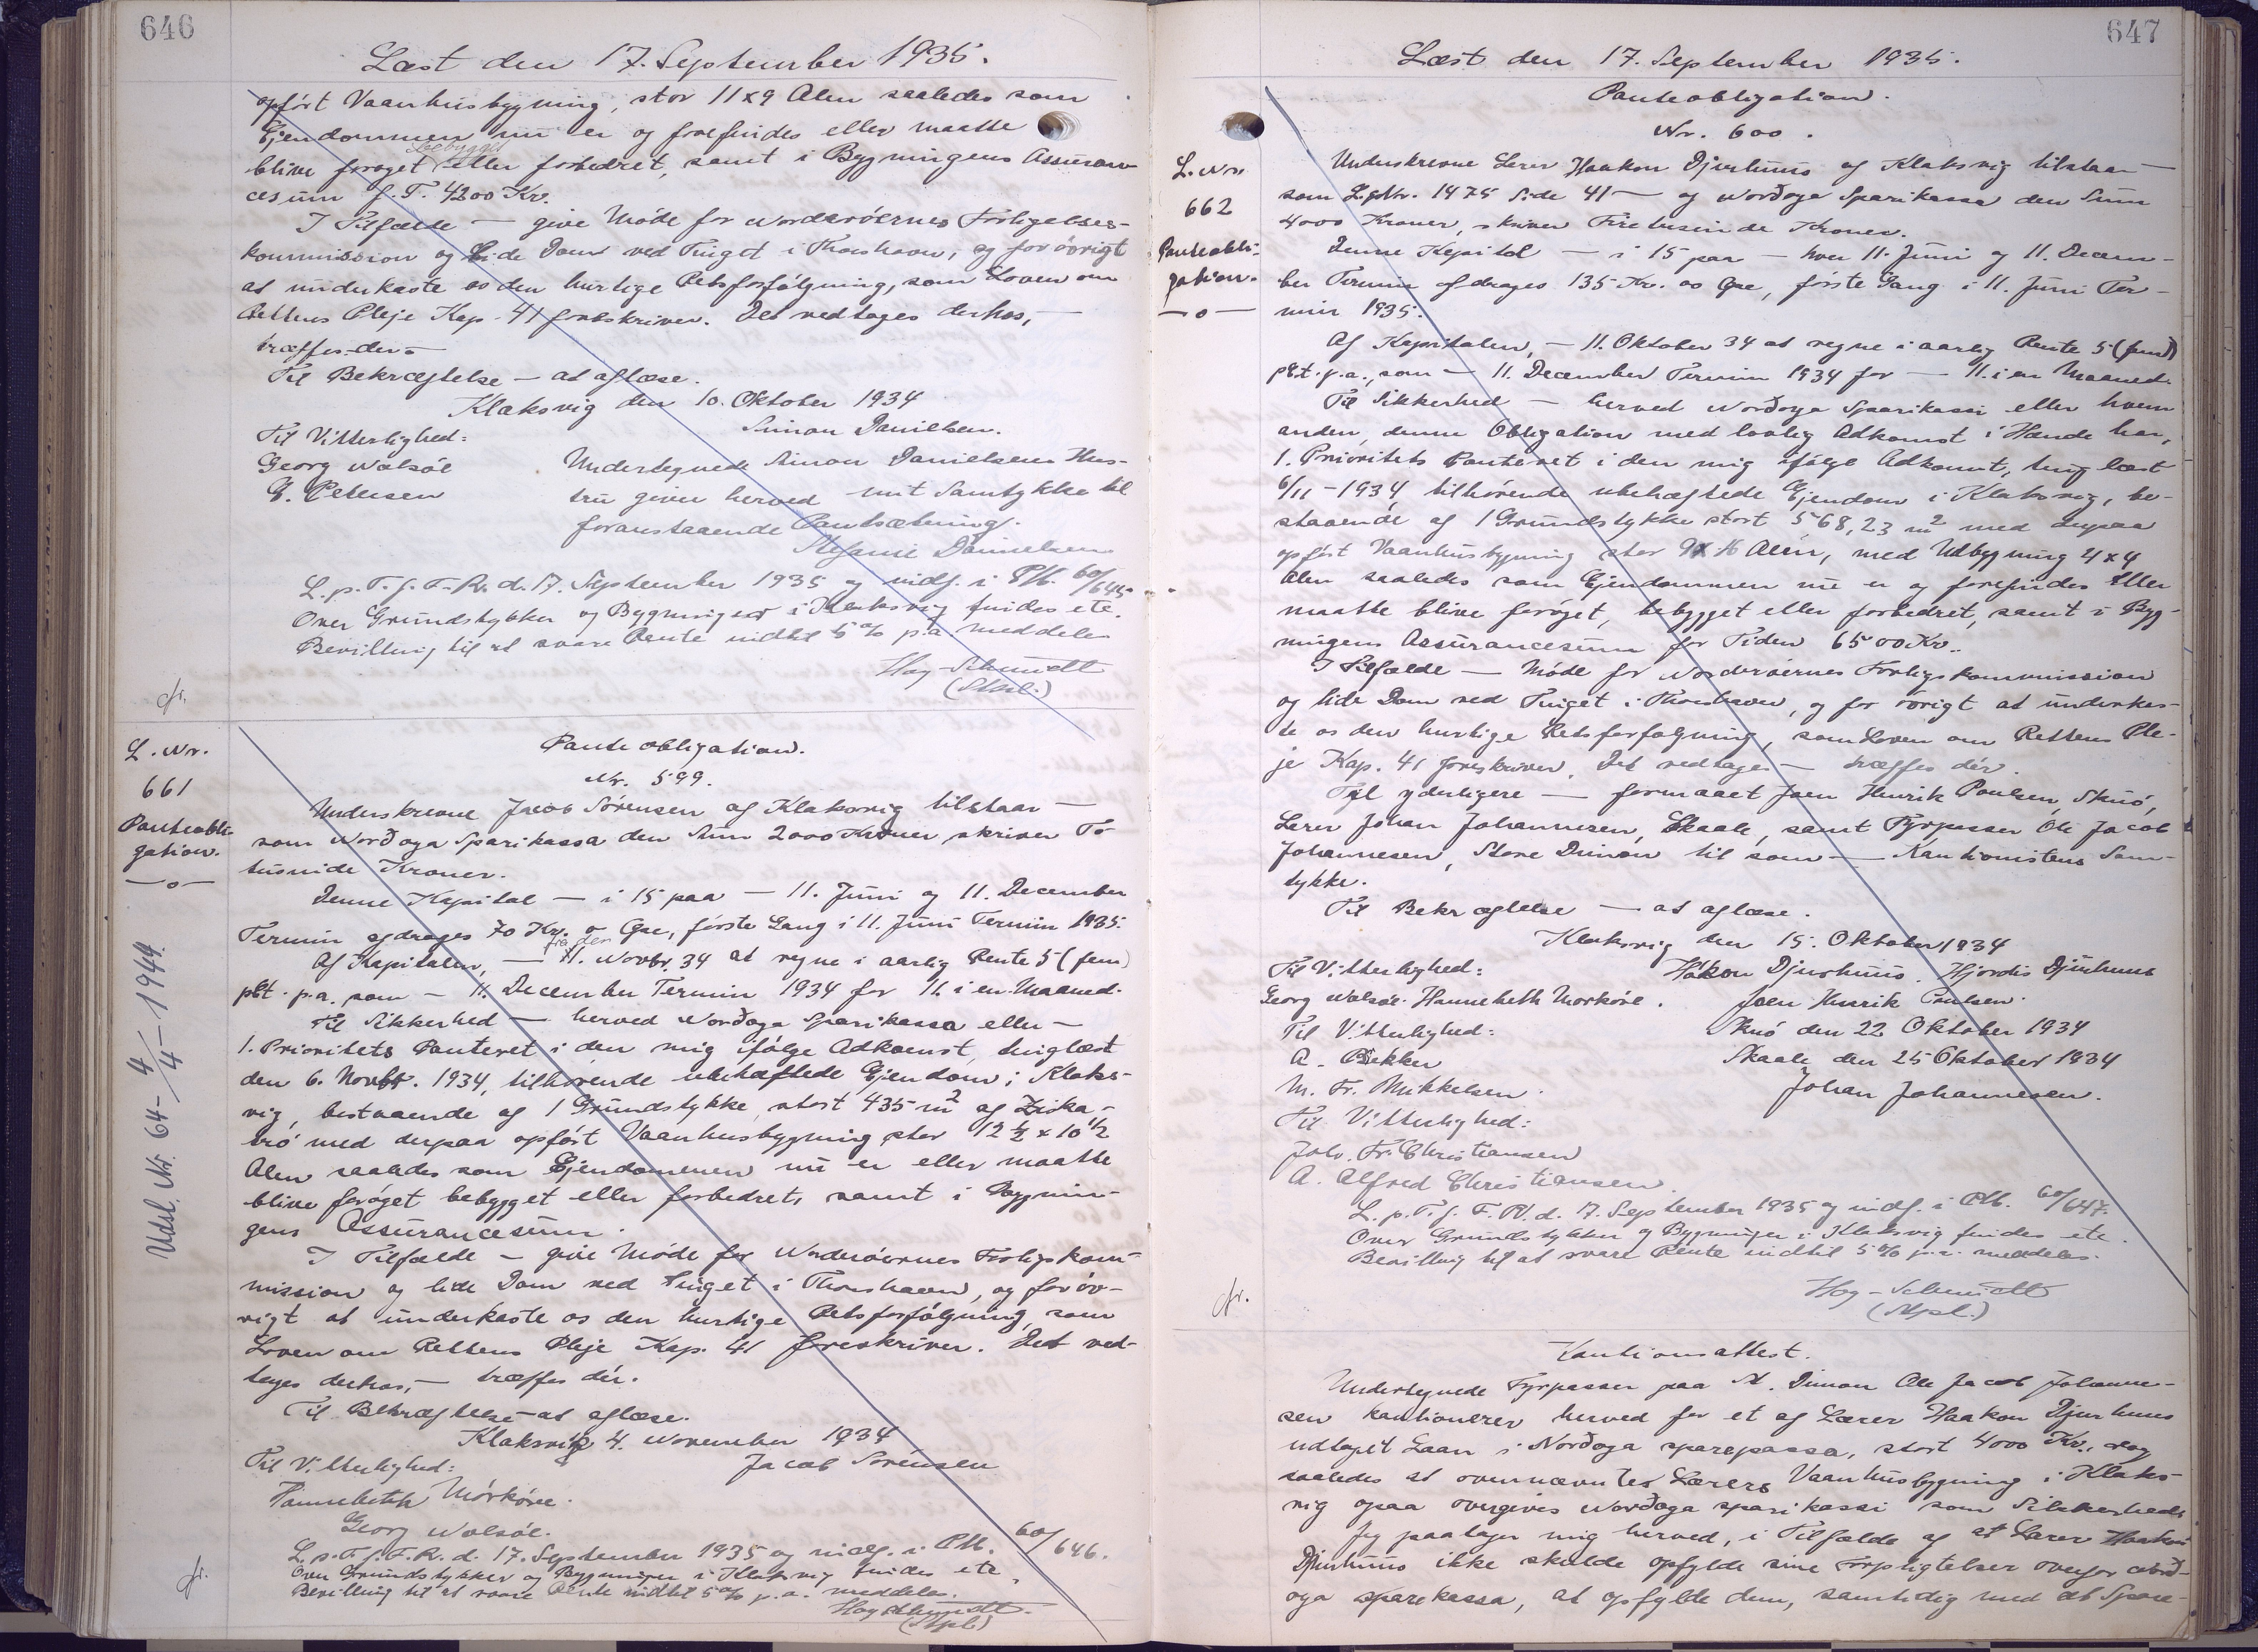 646
Læst den 17. September 1935.
opført Vaanhusbygning, stor 11x9 Alen saaledes som
Ejendommen nu er og forefindes eller maatte
bebygget
blive forøget eller forbedret, samt i Bygningens Assuran-
cesum f. T. 4200 Kr.
I Tilfælde — give Møde for Norderøernes Forligelses-
kommission og lide Dom ved Tinget i Thorshavn, og for øvrigt
at underkaste os den hurtige Retsforfølgning, som Loven om
Rettens Pleje Kap. 41 foreskriver. Det vedtages derhos, —
træffes der.
Til Bekræftelse — at aflæse.
Klaksvig den 10. Oktober 1934
Simon Danielsen.
Til Vitterlighed:
Georg Walsøe
G. Petersen
Undertegnede Simon Danielsens Hus-
tru giver herved mit Samtykke til
foranstaaende Pantsætning.
Stefanie Danielsen
L. p. T. f. F. R. d. 17. September 1935 og indf. i PM. 60/645.
Over Grundstykker og Bygninger i Klaksvig findes etc.
Bevilling til at svare Rente indtil 5 % p.a. meddeles
Hoy-Schmidt
(Stpl.)
fr.
L. Nr.
661
Panteobli-
gation.
—o—
Udsl. Nr. 64 - 4/4 - 1944.
Panteobligation.
Nr. 599.
Underskrevne Jacob Sørensen af Klaksvig tilstaar —
som Norðoya Sparikassa den Sum 2000 Kroner skriver To
tusinde Kroner.
Denne Kapital — i 15 paa — 11. Juni og 11. December
Termin afdrages 70 Kr. o Øre, første Gang i 11. Juni Termin 1935.
fra den
Af Kapitalen, — 11. Novbr. 34 at regne i aarlig Rente 5 (fem)
pCt. p.a. som — 11. December Termin 1934 for 11. i en Maaned.
Til Sikkerhed — herved Norðoya Sparikassa eller —
1. Prioritets Panteret i den mig ifølge Adkomst, tinglæst
den 6. Novbr. 1934, tilhørende ubehæftede Ejendom i Klaks-
vig, bestaaende af 1 Grundstykke stort 435 m2 af Ziska-
trø med derpaa opført Vaanhusbygning stor 12 1/2 x 10 1/2
Alen saaledes som Ejendommen nu er eller maatte
blive forøget bebygget eller forbedret, samt i Bygnin-
gens Assurancesum.
I Tilfælde — give Møde for Norderøernes Forligskom-
mission og lide Dom ved Tinget i Thorshavn, og for øv-
rigt at underkaste os den hurtige Retsforfølgning, som
Loven om Rettens Pleje Kap. 41 foreskriver. Det ved-
tages derhos, — træffes dér.
Til Bekræftelse — at aflæse.
Klaksvig 4. November 1934
Jacob Sørensen
Til Vitterlighed:
Hannebeth Mørkøre.
Georg Walsøe.
L. p. T. f. F. R. d. 17. September 1935 og indf. i PM. 60/646.
Over Grundstykker og Bygninger i Klaksvig findes etc.
Bevilling til at svare Rente indtil 5 % p.a. meddeles.
Hoy Schmidt.
(Stpl.)
fr.
647
Læst den 17. September 1935.
Panteobligation.
Nr. 600.
L. Nr.
662
Panteobli-
gation.
—o—
Underskrevne Lærer Haakon Djurhuus af Klaksvig tilstaar —
som L. Nr. 1475 Side 41 — og Norðoya Sparikassa den Sum
4000 Kroner, skriver Firetusinde Kroner.
Denne Kapital — i 15 paa — hver 11. Juni og 11. Decem-
ber Termin afdrages 135 Kr. oo Øre, første Gang i 11. Juni Ter-
min 1935.
Af Kapitalen, — 11. Oktober 34 at regne i aarlig Rente 5 (fem)
pCt. p.a., som — 11. December Termin 1934 for — 11. i en Maaned.
Til Sikkerhed — herved Norðoya Sparikassi eller hvem
anden, denne Obligation med lovlig Adkomst i Hænde har,
1. Prioritets Panteret i den mig ifølge Adkomst, tinglæst
6/11 - 1934 tilhørende ubehæftede Ejendom i Klaksvig, be-
staaende af 1 Grundstykke stort 568,23 m2 med derpaa
opført Vaanhusbygning stor 9x16 Alen, med Udbygning 4x4
Alen saaledes som Ejendommen nu er og forefindes eller
maatte blive forøget, bebygget eller forbedret, samt i Byg-
ningens Assurancesum for Tiden 6500 Kr..
I Tilfælde — Møde for Norderøernes Forligskommission
og lide Dom ved Tinget i Thorshavn, og for øvrigt at underkas-
te os den hurtige Retsforfølgning, som Loven om Rettens Ple-
je Kap. 41 foreskriver. Det vedtages — træffes dér.
Til yderligere — formaaet Joen Henrik Poulsen Skuö,
Lærer Johan Johannesen, Skaale, samt Fyrpasser Ole Jacob
Johannesen, Store Dimon til som — Kautionistens Sam-
tykke.
Til Bekræftelse — at aflæse.
Klaksvig den 15. Oktober 1934
Til Vitterlighed:
Haakon Djurhuus. Hjørdis Djurhuus
Georg Walsøe. Hannebeth Mørkøre.
Joen Henrik Poulsen.
Til Vitterlighed:
Skuö den 22 Oktober 1934
A. Bekker
Skaale, den 25 Oktober 1934
M. Fr. Mikkelsen.
Johan Johannesen.
Til Vitterlighed:
Joh. Fr. Christiansen
A. Alfred Christiansen.
L. p. T. f. F. R. d. 17. September 1935 og indf. i PM. 60/647.
Over Grundstykker og Bygninger i Klaksvig findes etc.
Bevilling til at svare Rente indtil 5 % p.a. meddeles.
Hoy-Schmidt
(Stpl.)
fr.
Kautionsattest.
Undertegnede Fyrpasser paa St. Dimon Ole Jacob Johanne-
sen kautionerer herved for et af Lærer Haakon Djurhuus
udtaget Laan i Norðoya sparepassa, stort 4000 Kr., dog
saaledes at overnævntes Lærers Vaanhusbygning i Klaks-
vig opaa overgives Norðoya sparikassi som Sikkerhed.
Jeg paatager mig herved, i Tilfælde af at Lærer Haakon
Djurhuus ikke skulde opfylde sine Forpligtelser overfor Norð-
oya sparekassa, at opfylde dem, samtidig med at Spare-